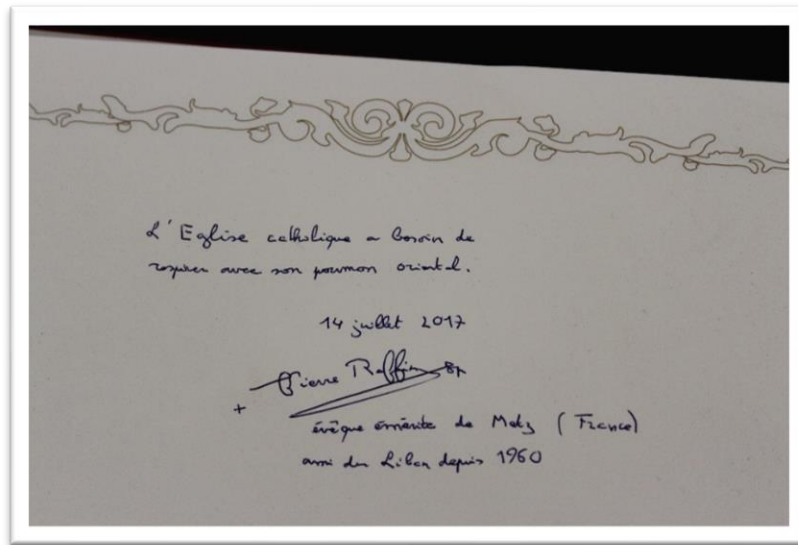 L'Eglise catholique a besoin de
respirer avec son poumon oriental.
14 juillet 2017
+ Pierre Raffin
évêque émérite de Metz (France)
ami du Liban depuis 1960